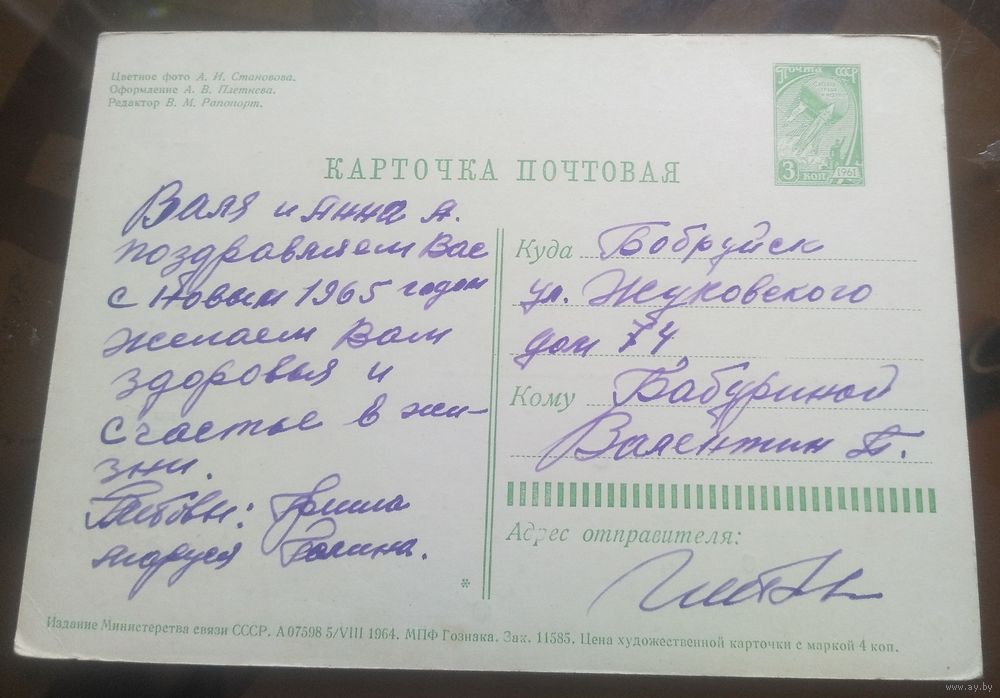 Цветное фото А. И. Становова.
Оформление А. В. Плетнева.
Редактор В. М. Рапопорт.
Почта СССР
3 коп
1961
КАРТОЧКА ПОЧТОВАЯ
Валя и Анна А.
поздравляем Вас
с Новым 1965 годом
желаем Вам
здоровья и
счастье в жи-
зни.
Гриша
Маруся Галина.
Куда Бобруйск
ул. Жуковского
дом 74
Кому Бабуриной
Валентин Т.
Адрес отправителя:
*
Издание Министерства связи СССР. А 07598 5/VIII 1964. МПФ Гознака. Зак. 11585. Цена художественной карточки с маркой 4 коп.
www.ay.by